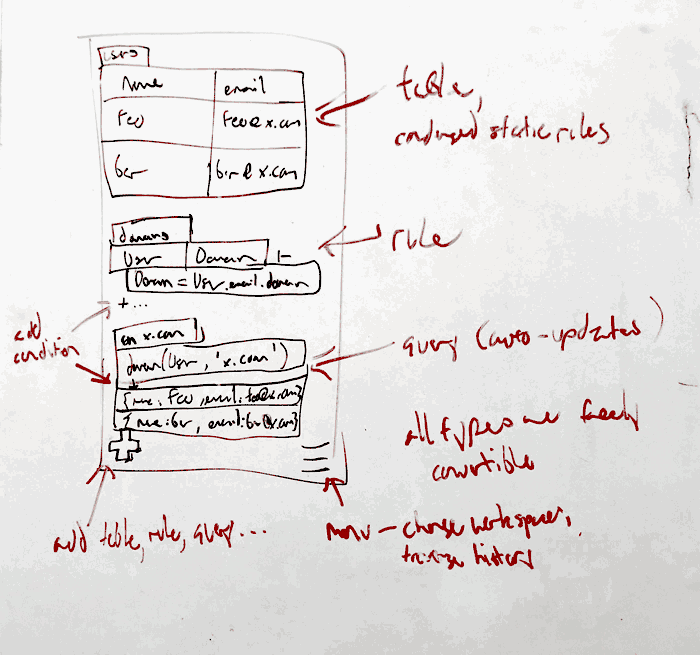 users
name email
Foo Foo@x.com
bar bar@x.com
table,
condensed static rules
domains
User Domain :-
Domain = User.email.domain
+ ...
rule
add
condition
on x.com
domain(User, 'x.com')
{name: Foo, email: foo@x.com}
{name: bar, email: bar@x.com}
query (auto-updates)
all types are freely
convertible
add table, rule, query ...
menu — change workspaces,
history